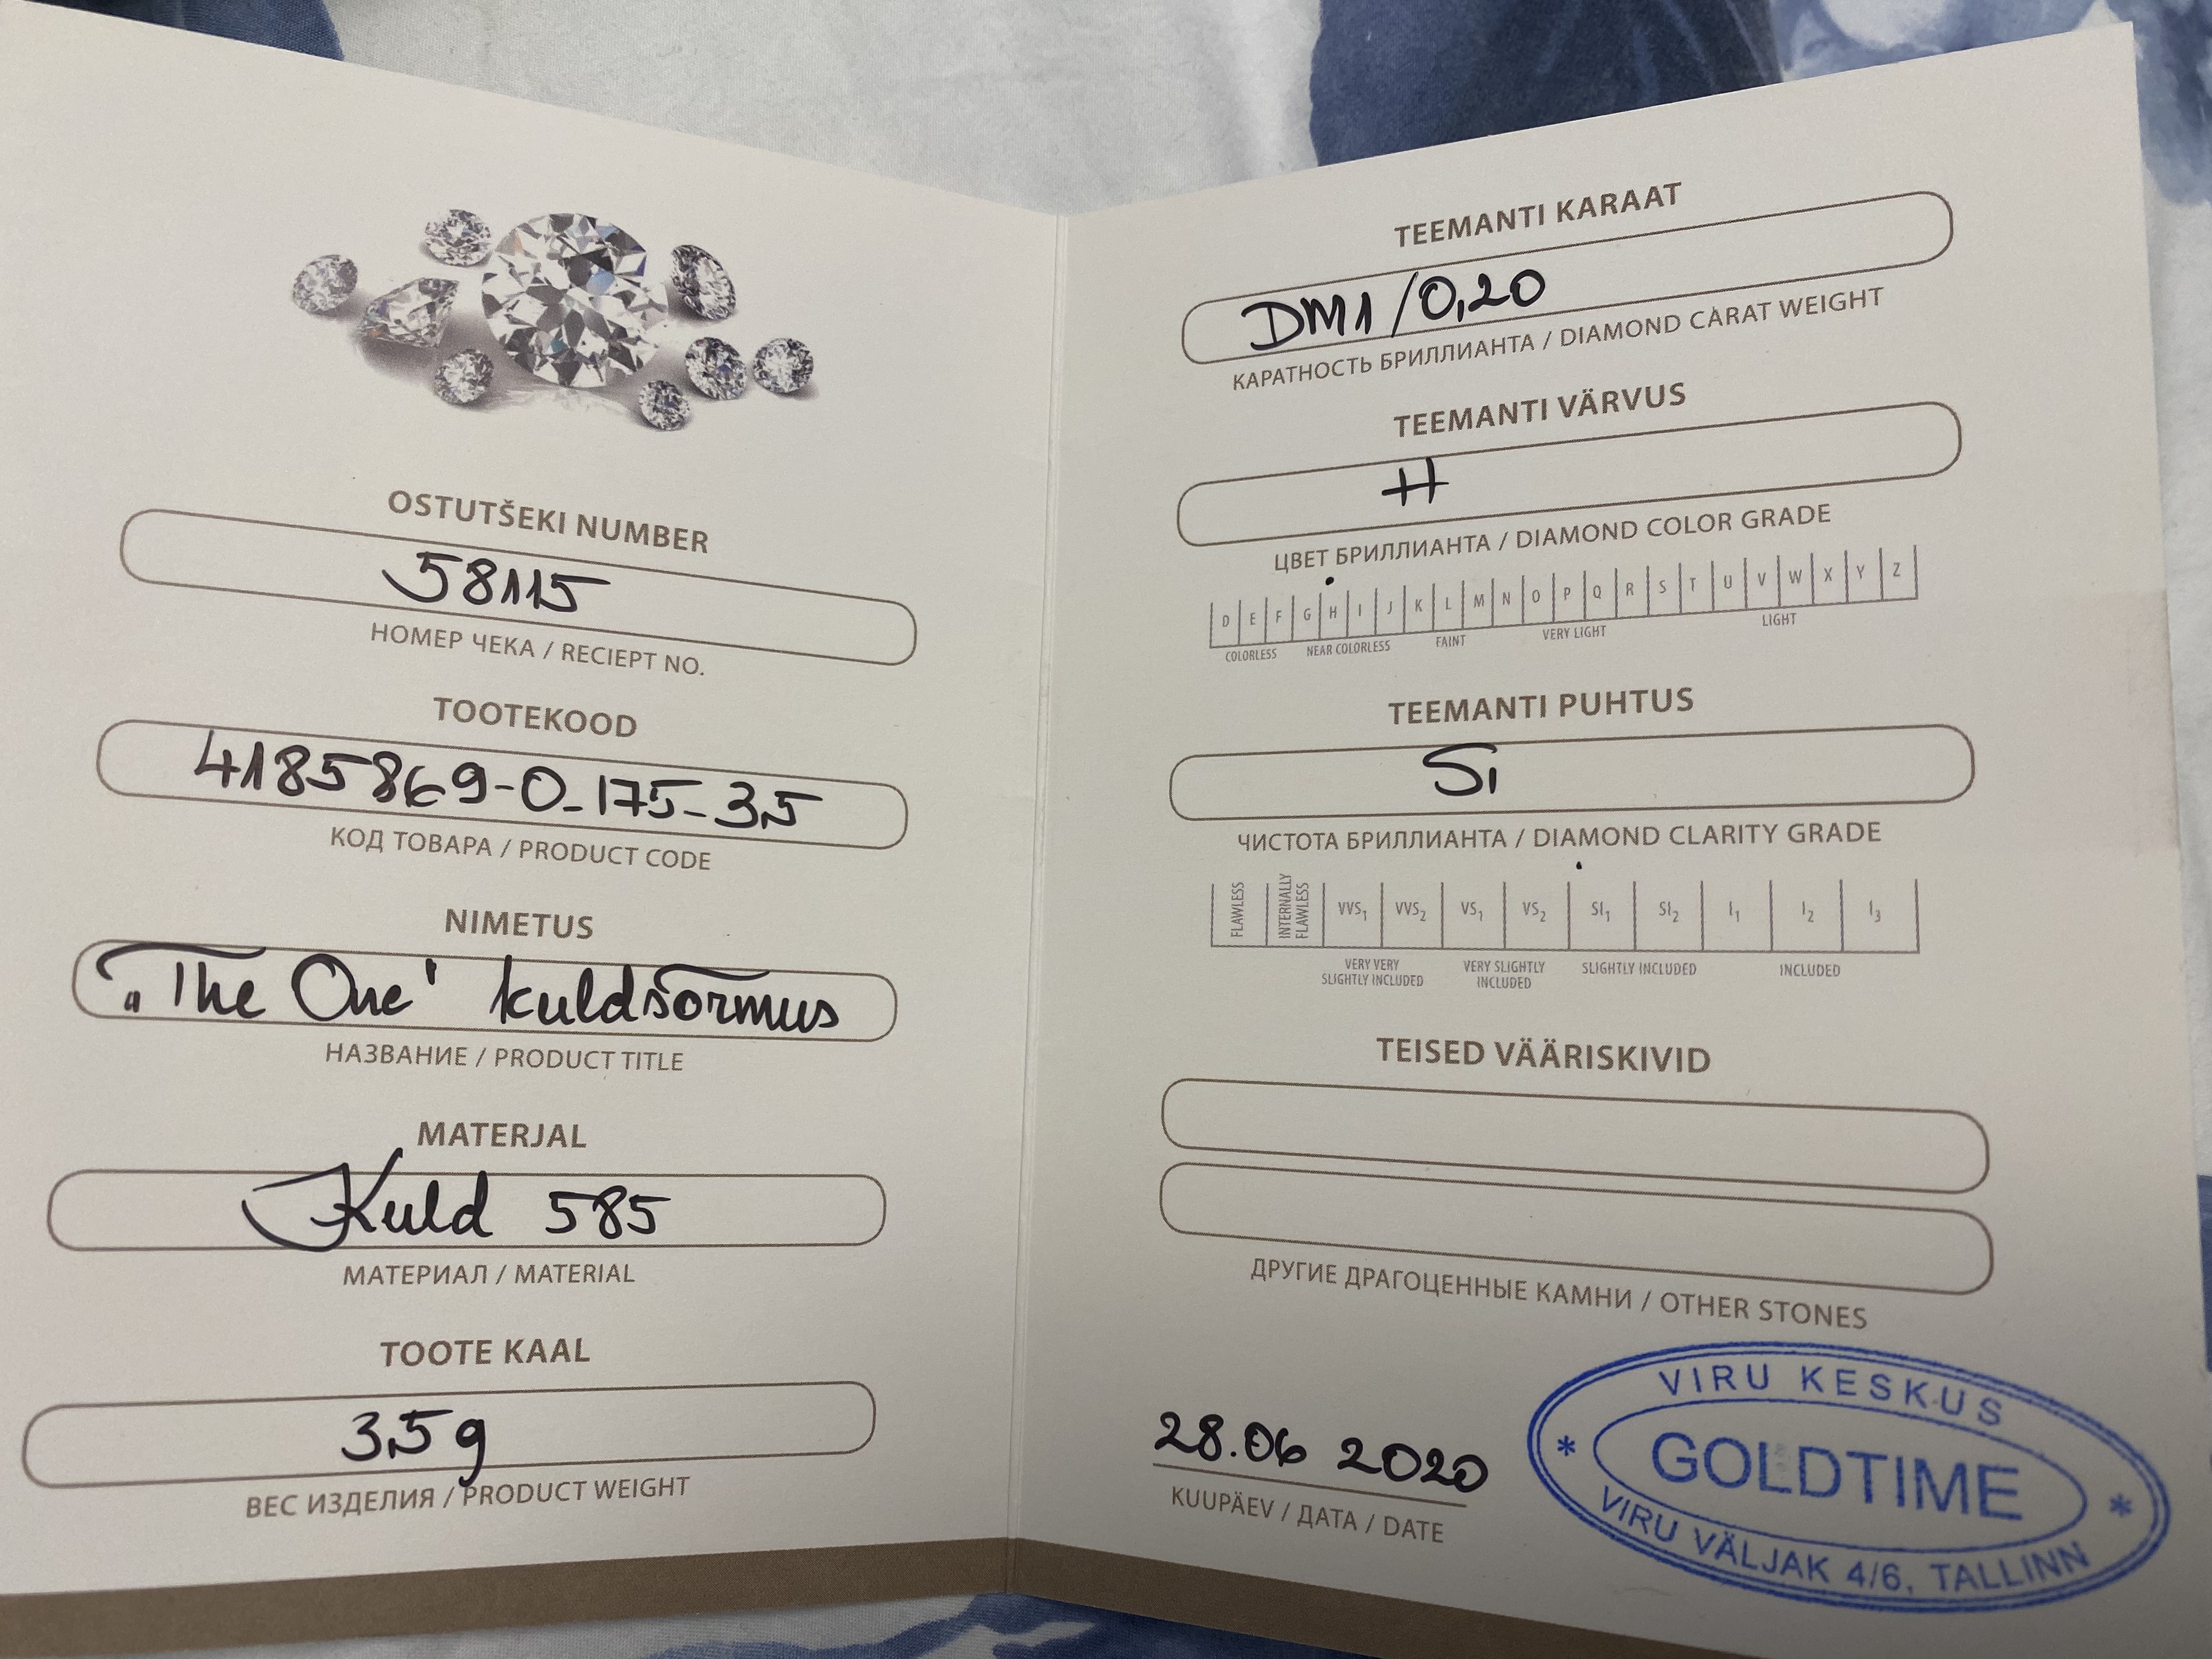 OSTUTŠEKI NUMBER
58115
НОМЕР ЧЕКА / RECIEPT NO.
TOOTEKOOD
4185869-0-175-3,5
КОД ТОВАРА / PRODUCT CODE
NIMETUS
„The One' kuldsõrmus
НАЗВАНИЕ / PRODUCT TITLE
MATERJAL
Kuld 585
МАТЕРИАЛ / MATERIAL
TOOTE KAAL
3,5 g
ВЕС ИЗДЕЛИЯ / PRODUCT WEIGHT
TEEMANTI KARAAT
DM1/0,20
КАРАТНОСТЬ БРИЛЛИАНТА / DIAMOND CARAT WEIGHT
TEEMANTI VÄRVUS
H
ЦВЕТ БРИЛЛИАНТА / DIAMOND COLOR GRADE
D E F G H I J K L M N O P Q R S T U V W X Y Z
COLORLESS NEAR COLORLESS FAINT VERY LIGHT LIGHT
TEEMANTI PUHTUS
Si
ЧИСТОТА БРИЛЛИАНТА / DIAMOND CLARITY GRADE
FLAWLESS INTERNALLY FLAWLESS VVS1 VVS2 VS1 VS2 SI1 SI2 I1 I2 I3
VERY VERY SLIGHTLY INCLUDED VERY SLIGHTLY INCLUDED SLIGHTLY INCLUDED INCLUDED
TEISED VÄÄRISKIVID
ДРУГИЕ ДРАГОЦЕННЫЕ КАМНИ / OTHER STONES
28.06 2020
KUUPÄEV / ДАТА / DATE
VIRU KESKUS
* GOLDTIME *
VIRU VÄLJAK 4/6, TALLINN